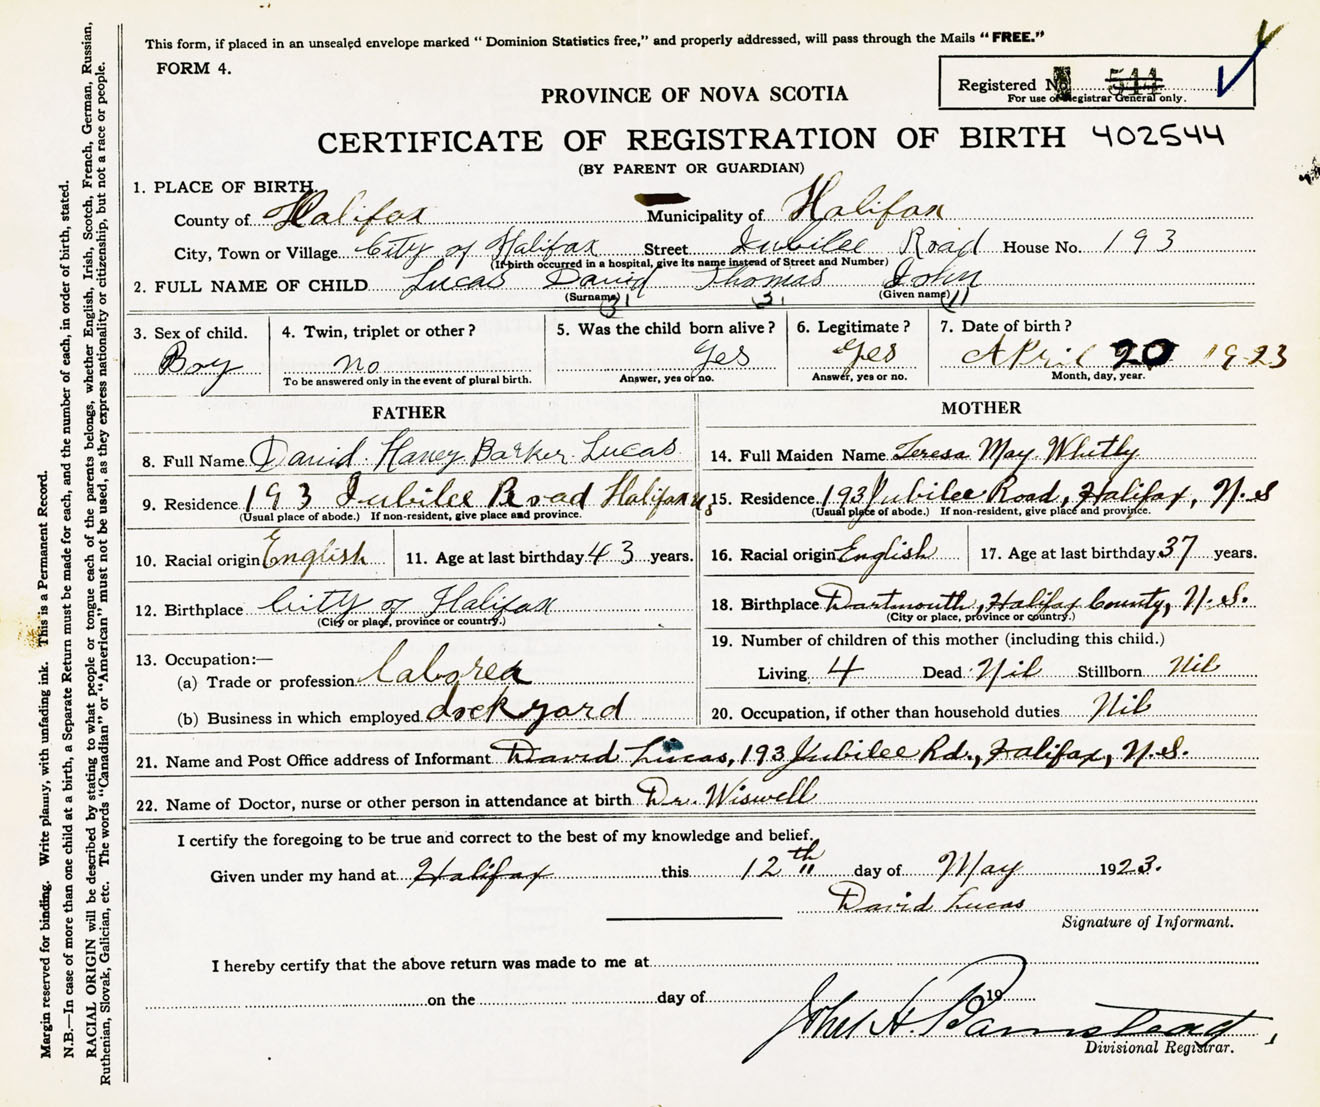 This form, if placed in an unsealed envelope marked “ Dominion Statistics free,” and properly addressed, will pass through the Mails “ FREE.”
FORM 4.
Registered No. 544
For use of Registrar General only.
PROVINCE OF NOVA SCOTIA
CERTIFICATE OF REGISTRATION OF BIRTH 402544
(BY PARENT OR GUARDIAN)
1. PLACE OF BIRTH.
County of Halifax Municipality of Halifax
City, Town or Village City of Halifax Street Jubilee Road House No. 193
(If birth occurred in a hospital, give its name instead of Street and Number)
2. FULL NAME OF CHILD Lucas David Thomas John
(Surname) (Given name)
3. Sex of child. 4. Twin, triplet or other ? 5. Was the child born alive ? 6. Legitimate ? 7. Date of birth ?
Boy no Yes Yes April 20 1923
To be answered only in the event of plural birth. Answer, yes or no. Answer, yes or no. Month, day, year.
FATHER
8. Full Name David Harvey Barker Lucas
9. Residence 193 Jubilee Road Halifax NS
(Usual place of abode.) If non-resident, give place and province.
10. Racial origin English 11. Age at last birthday 43 years.
12. Birthplace City of Halifax
(City or place, province or country.)
13. Occupation:—
(a) Trade or profession laborer
(b) Business in which employed dockyard
MOTHER
14. Full Maiden Name Teresa May Whitly
15. Residence 193 Jubilee Road, Halifax, N.S
(Usual place of abode.) If non-resident, give place and province.
16. Racial origin English 17. Age at last birthday 37 years.
18. Birthplace Dartmouth, Halifax County, N.S.
(City or place, province or country.)
19. Number of children of this mother (including this child.)
Living 4 Dead Nil Stillborn Nil
20. Occupation, if other than household duties Nil
21. Name and Post Office address of Informant David Lucas, 193 Jubilee Rd., Halifax, N.S.
22. Name of Doctor, nurse or other person in attendance at birth Dr. Wiswell
I certify the foregoing to be true and correct to the best of my knowledge and belief.
Given under my hand at Halifax this 12th day of May 1923.
David Lucas
Signature of Informant.
I hereby certify that the above return was made to me at
on the day of 19
John H. Barnstead
Divisional Registrar.
Margin reserved for binding. Write plainly, with unfading ink. This is a Permanent Record.
N.B.—In case of more than one child at a birth, a Separate Return must be made for each, and the number of each, in order of birth, stated.
RACIAL ORIGIN will be described by stating to what people or tongue each of the parents belongs, whether English, Irish, Scotch, French, German, Russian,
Ruthenian, Slovak, Galician, etc. The words “Canadian” or “American” must not be used, as they express nationality or citizenship, but not a race or people.